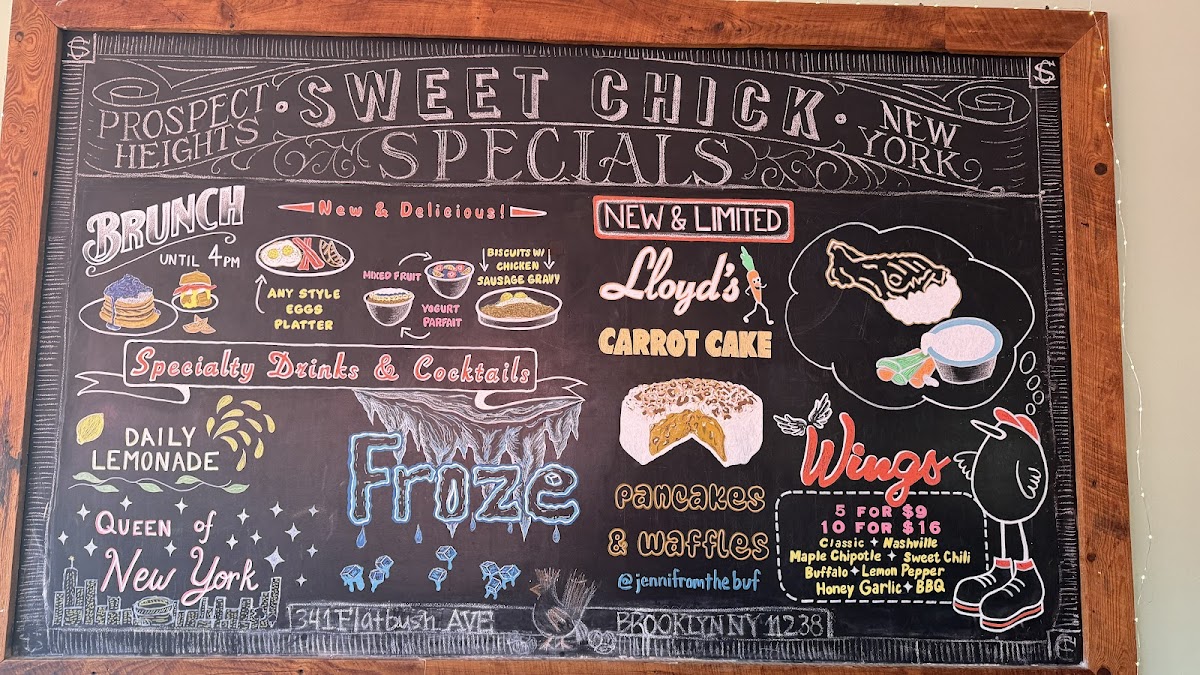 PROSPECT HEIGHTS
· SWEET CHICK ·
SPECIALS
NEW YORK
BRUNCH
UNTIL 4PM
New & Delicious!
ANY STYLE
EGGS
PLATTER
MIXED FRUIT
YOGURT
PARFAIT
BISCUITS W/
CHICKEN
SAUSAGE GRAVY
Specialty Drinks & Cocktails
DAILY
LEMONADE
Froze
QUEEN of
New York
NEW & LIMITED
Lloyd's
CARROT CAKE
PANCAKES
& WAFFLES
@jennifromthebuf
Wings
5 FOR $9
10 FOR $16
Classic ✦ Nashville
Maple Chipotle ✦ Sweet Chili
Buffalo ✦ Lemon Pepper
Honey Garlic ✦ BBQ
341 Flatbush AVE
BROOKLYN NY 11238